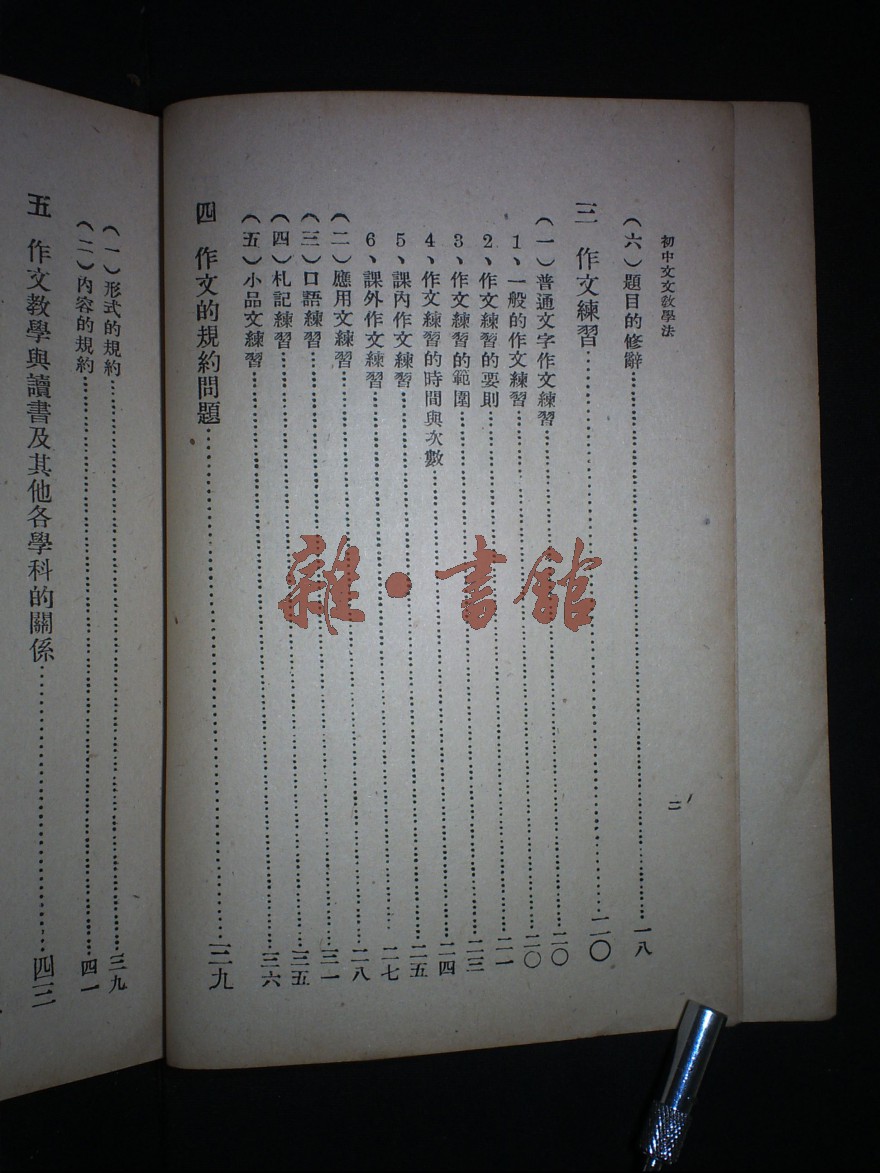 初中文文敎學法
二
（六）題目的修辭……一八
三 作文練習……二〇
（一）普通文字作文練習……二〇
1、一般的作文練習……二〇
2、作文練習的要則……二一
3、作文練習的範圍……二三
4、作文練習的時間與次數……二四
5、課內作文練習……二五
6、課外作文練習……二七
（二）應用文練習……二八
（三）口語練習……三一
（四）札記練習……三五
（五）小品文練習……三六
四 作文的規約問題……三九
（一）形式的規約……三九
（二）內容的規約……四一
五 作文敎學與讀書及其他各學科的關係……四三
雜·書館